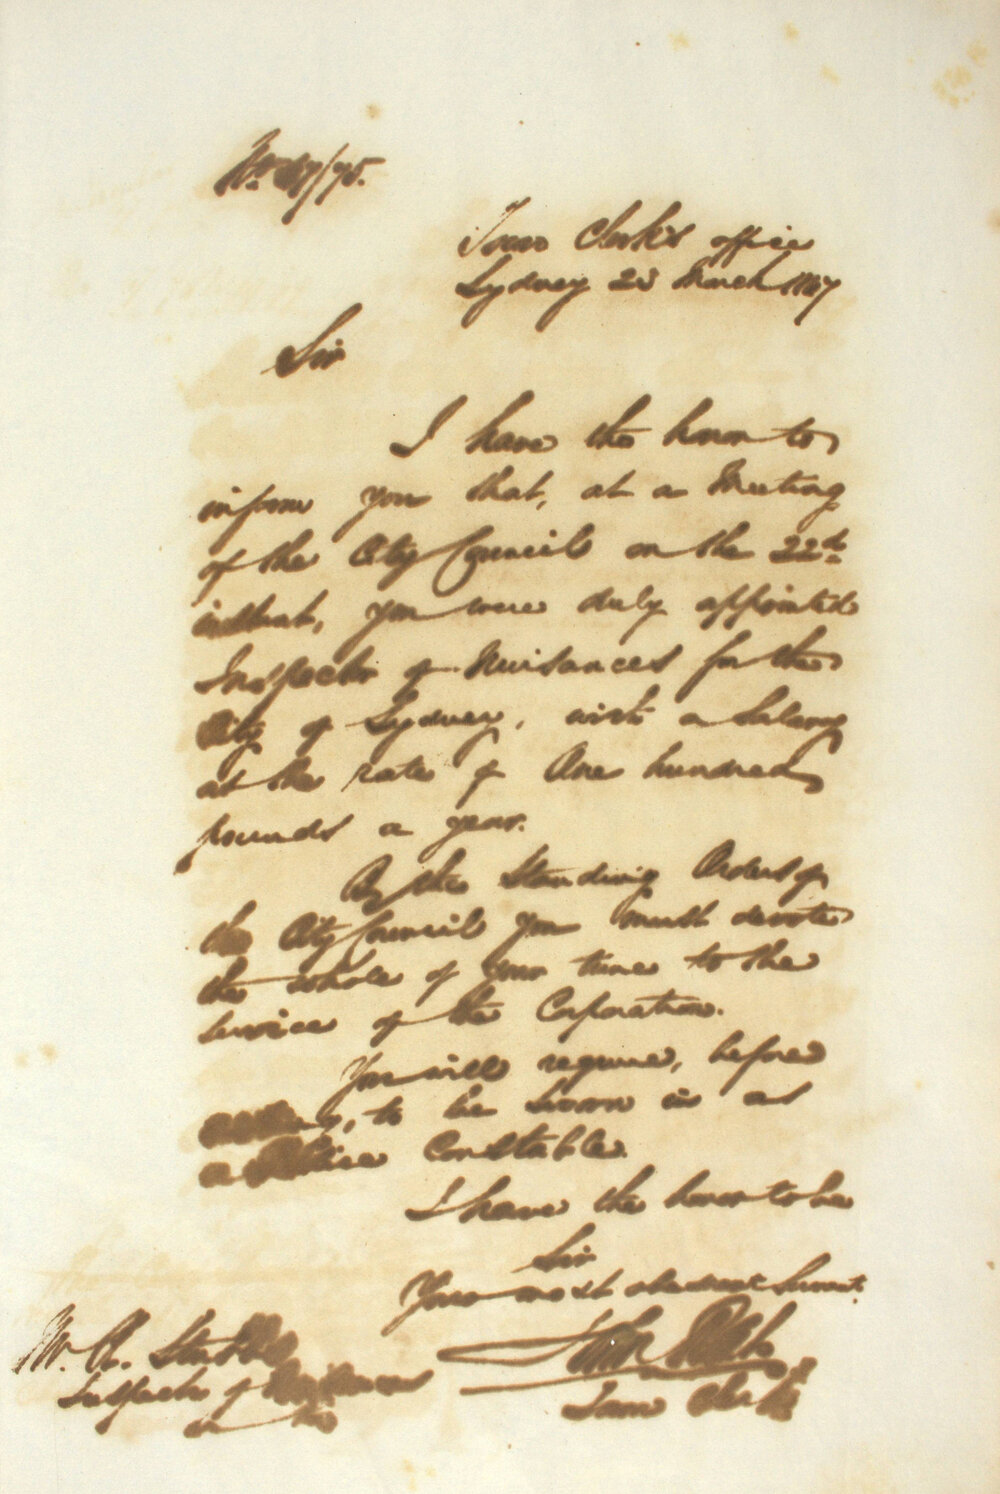 No. 67/75.
Town Clerk's office
Sydney 23 March 1847
Sir
I have the honor to
inform you that, at a Meeting
of the City Council on the 22d
instant, you were duly appointed
Inspector of Nuisances for the
City of Sydney, with a Salary
at the rate of One hundred
pounds a year.
By the Standing Orders of
the City Council you must devote
the whole of your time to the
service of the Corporation.
You will require, before
acting, to be sworn in as
a Police Constable.
I have the honor to be
Sir
Your most obedient Servant.
John
Town Clerk
Mr. A. Stubbs
Inspector of Nuisances